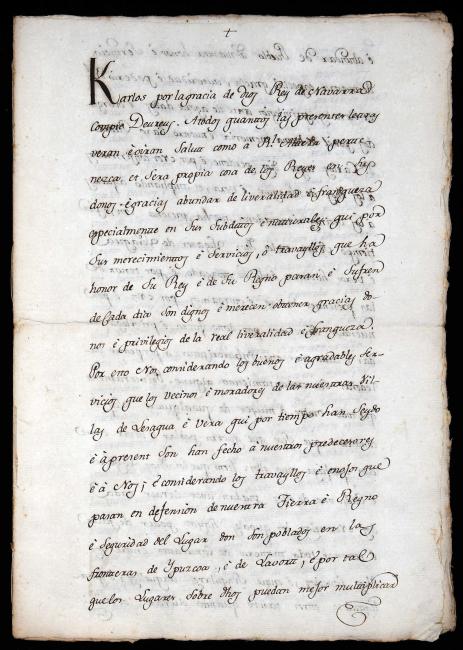 Karlos por la gracia de dios Rey de Navarra
Compte Deureus. A todos quantos las presentes letras
veran è oiran Salut como à perte
nezca, et sera propia cosa de los Reyes en sus
donos è gracias abundar de liveralidad è franqueza
especialmente en Sus Subditos è naturales, qui por
Sus merecimientos è Servicios, è travayllos que ha
honor de Su Rey è de Su Regno paran è Sufren
de Cada dia Son dignos è merecen obtener gracias do-
nos è privilegios de la real liveralidad è franqueza.
Por esto Nos, considerando los buenos è agradables Ser-
vicios que los vecinos è moradores de las nuestras vil-
las de Lesaqua è Vera qui por tiempo han Seydo
è à present Son han fecho à nuestros predecesores
è à Nos; è considerando los travayllos è enojos que
pasan en defension de nuestra Tierra è Regno
è Seguridad del Lugar don Son poblados en las
fronteras de Ypuzcoa, è de Lavort; è por tal
que los Lugares Sobre dhos puedan mejor multiplicar